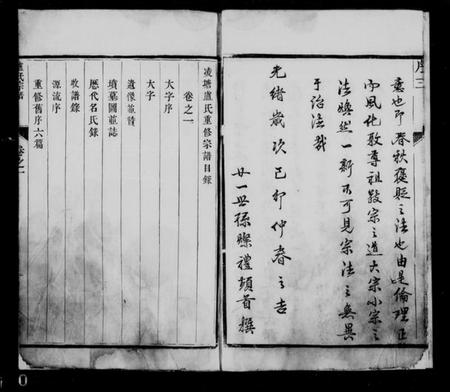 序三
意也即春秋褒貶之法也由是倫理正
而風化敦尊祖敬宗之道大宗小宗之
法煥然一新不可見宗法之無異
于治法哉
光緒歲次己卯仲春之吉
廿一世孫燦禮頓首撰
凌塘盧氏重修宗譜目錄
卷之一
大字序
大字
遺像並贊
墳墓圖並誌
歷代名氏錄
收譜錄
源流序
重修舊序六篇
盧氏宗譜
卷之一
0